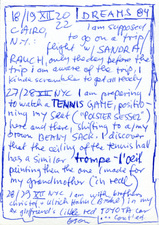 18/19 XII 20 DREAMS 84
CAIRO, 22 I am supposed
N.Y. to go on a trip/
flight w/ SANDRA
RAUCH, only the day before the
trip I am aware of the trip,
kinda scramble to get ready
27/28 XII N.Y. I am preparing
to watch a TENNIS GAME, position-
ing my seat ("POLSTER SESSEL")
here and there, sitting to a/my
DENNY SACK. I discover
that the ceiling of the tennis hall
has a similar trompe-l'oeil
painting then the one I made for
my grandmother (in red)
28/29 XII N.Y. I am with brothers
christ + ulrich in my
ex girlfriend's little red TOYOTA car